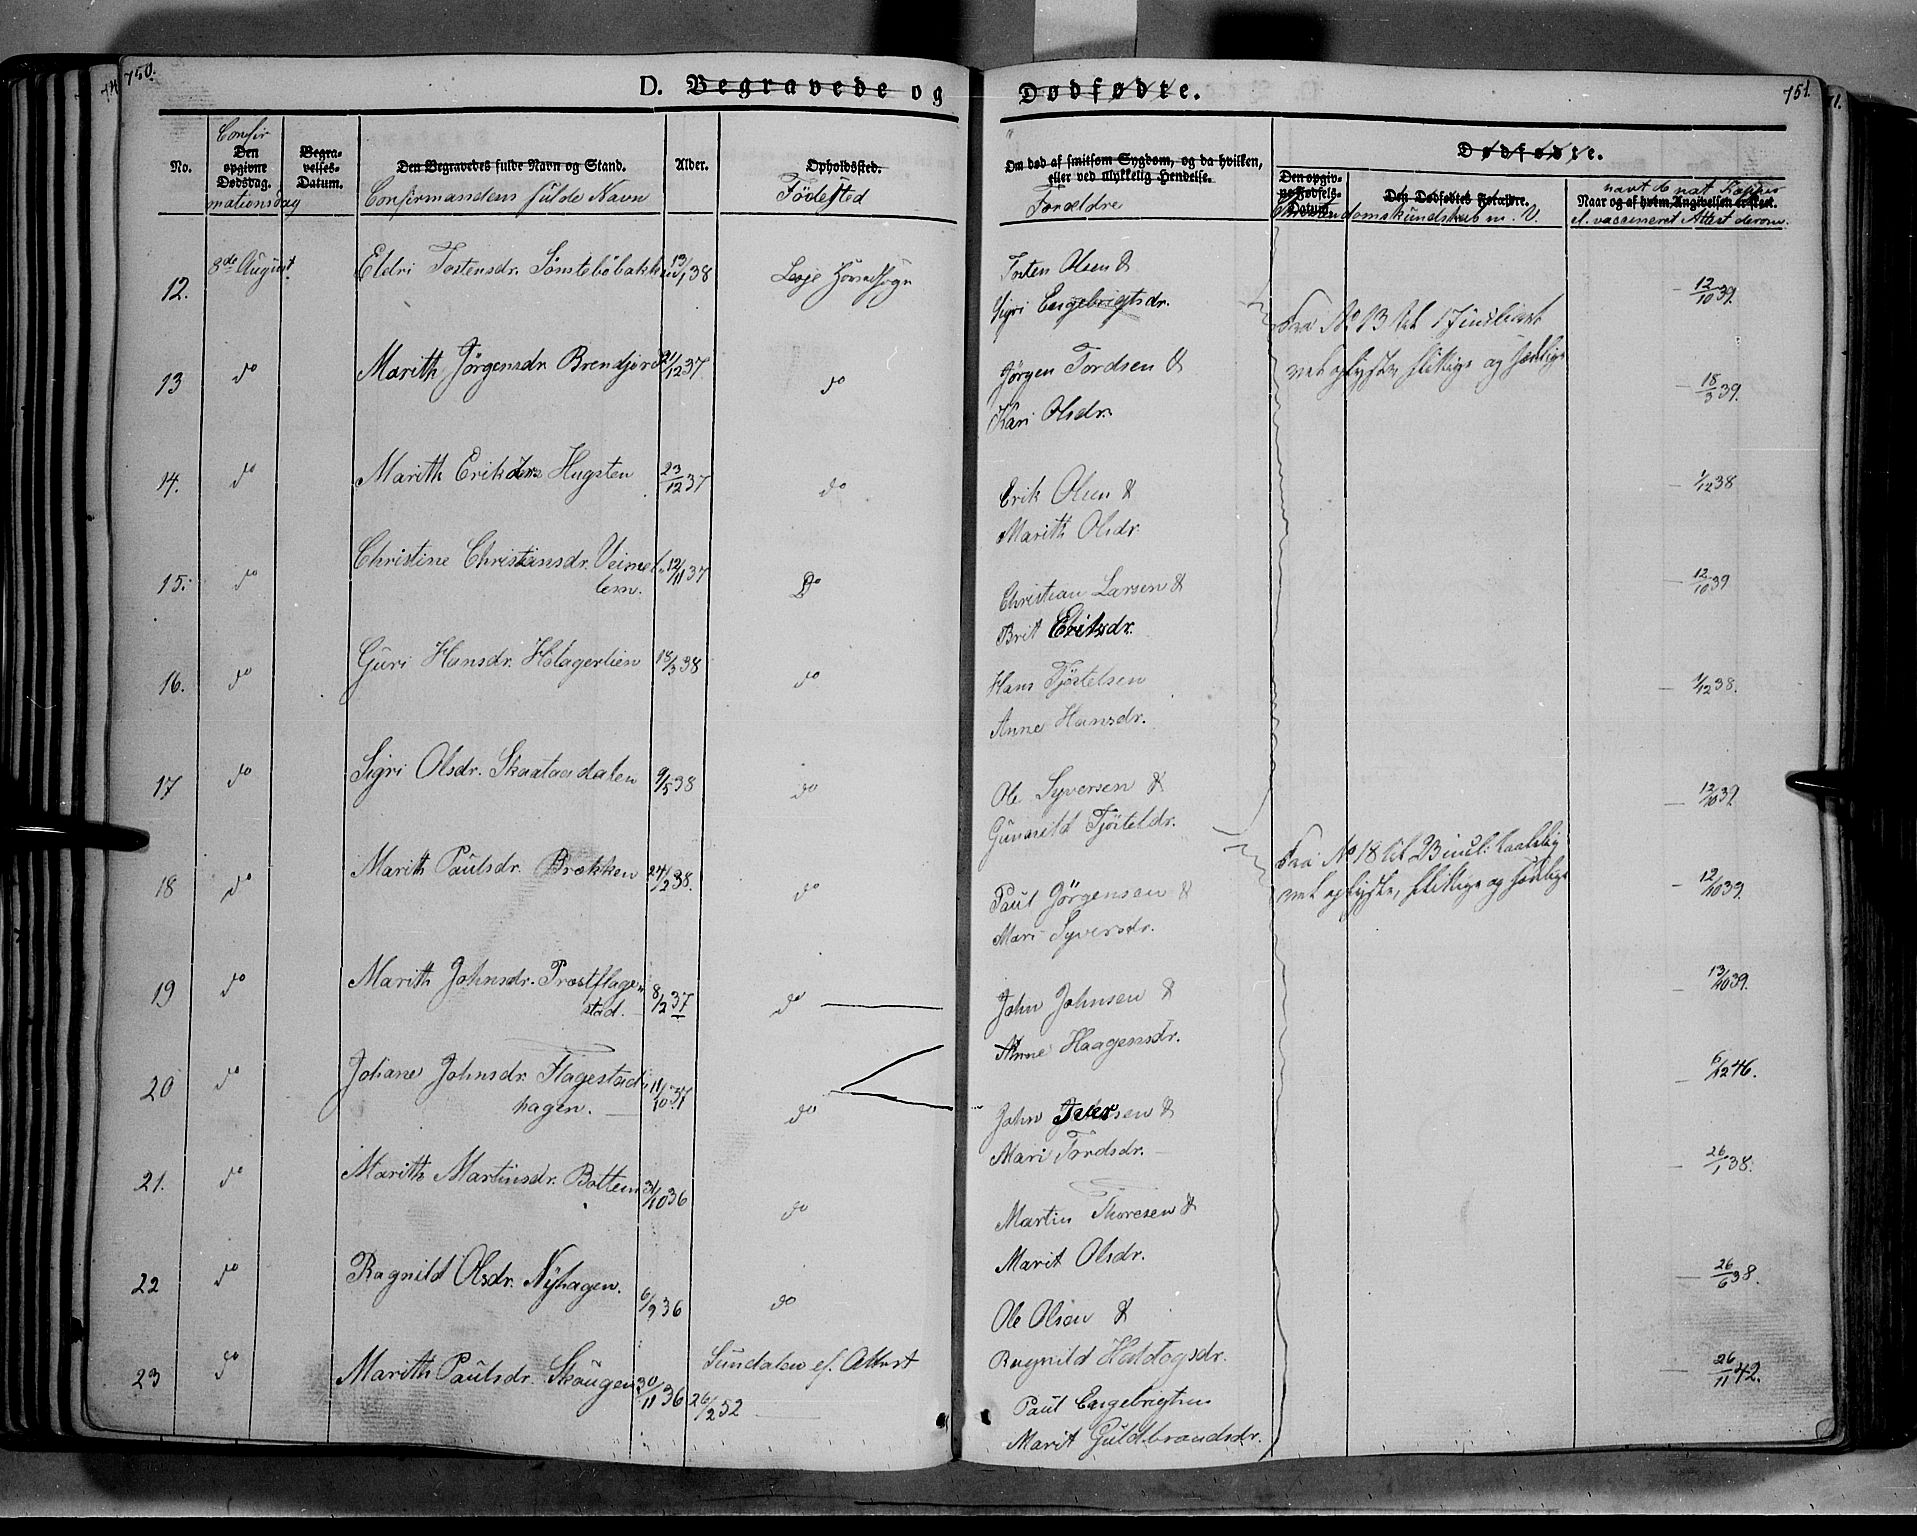 750.
751.
D. Begravede og Dødfødte.
No.
Confir
Den opgivne Dødsdag.
mationsdag
Begravelses-Datum.
Den Begravedes fulde Navn og Stand.
Confirmandens fulde Navn
Alder.
Opholdssted.
Födested
Om død af smitsom Sygdom, og da hvilken, eller ved ulykkelig Hendelse.
Forældre
Dødfødte.
Den opgivne Fødsels-Datum.
Den Dødfødtes Forældre.
Christendomskundskab m. V.
Naar og af hvem Angivelsen er skeet.
havt de nat. Kopper
el. vaccineret Attest derom.
12. 8de August Eldri Tostensdr. Sønsteböbakken 13/1 38 Lesje Hovedsogn
Tosten Olsen &
Sigri Engebrigtsdr.
12/10 39.
Fra No 13 til 17 incl
vel oplyste, flittige og sædelige
13 do Marith Jörgensdr. Brendjord 21/12 37 do
Jörgen Tordsen &
Kari Olsdr.
18/3 39.
14. do Marith Eriksdr. Hugsten 23/12 37 do
Erik Olsen &
Marith Olsdr.
1/12 38
15. do Christine Christiansdr. Veimel-
lem. 12/11 37 Do
Christian Larsen &
Brit Eriksdr.
12/10 39
16. do Guri Hansdr. Holagerlien 18/3 38 do
Hans Tjöstelsen
Anne Hansdr.
1/12 38.
17 do Sigri Olsdr. Skaataadalen 9/5 38 do
Ole Syversen &
Gunnild Tjösteldr.
12/10 39.
Fra No 18 til 23 incl:
vel oplyste, flittige og sædelige
18 do Marith Paulsdr. Brækken 24/2 38. do
Paul Jörgensen &
Mari Syversdr.
12/10 39.
19 do Marith Johnsdr. Præstflage-
stad. 8/2 37 do
John Johnsen &
Anne Haagensdr.
13/10 39.
20 do Johane Johnsdr. Flagestad-
hagen. 11/10 37 do
John Iversen &
Mari Tordsdr.
6/12 46.
21. do Marith Martinsdr. Bottem 31/10 36 do
Martin Thoresen &
Marit Olsdr.
26/1 38.
22 do Ragnild Olsdr. Nyhagen. 6/9 36 do
Ole Olsen &
Ragnild Haldogsdr.
26/6 38.
23 do Marith Paulsdr. Skougen 30/11 36 Sundalen ef. Attest
26/2 52
Paul Engebrigtsen
Marit Guldbrandsdr.
26/11 42.